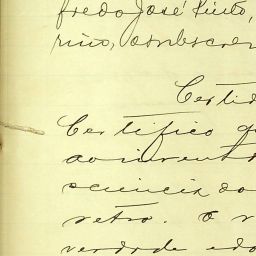 fredo José Pinto,
rino, o subscrev
Certid
Certifico q
ao invent
sciencia do
retro. O r
verdade e do